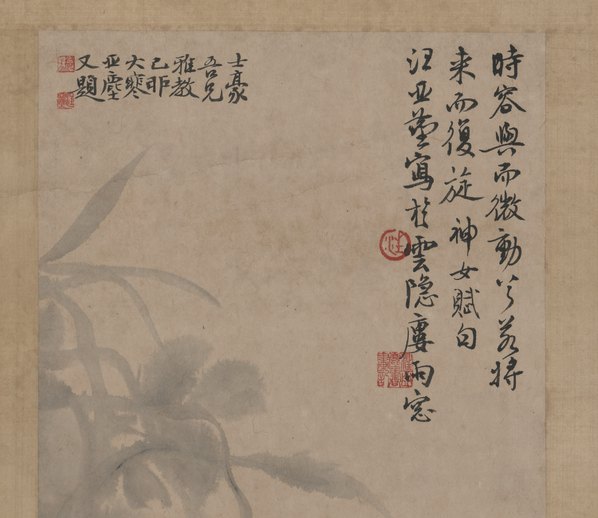 時容與而微動兮若將
来而復旋神女賦句
汪亞塵寫於雲隐廔雨窓
士豪
吾兄
雅教
己卯
大寒
亚塵
又題